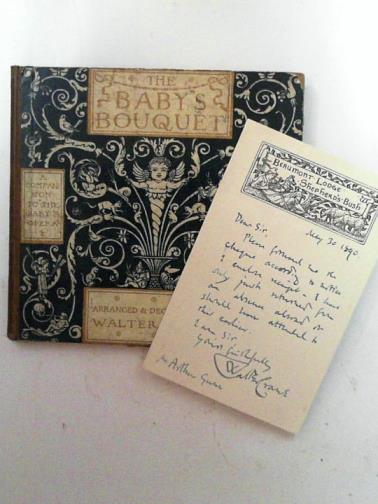 THE
BABY'S
BOUQUET
A
COMPAN
ION TO
THE
BABY'S
OPERA
ARRANGED & DEC
WALTER
BEAUMONT LODGE
SHEPHERD'S BUSH
May 30 1890
Dear Sir,
Please forward me the
cheque according to notice
I enclose receipt. I have
only just returned from
an absence abroad or
should have attended to
this earlier.
I am, Sir
Yours faithfully
Walter Crane
Mr Arthur